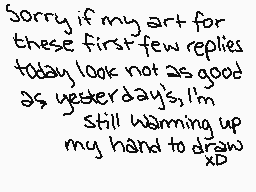 Sorry if my art for
these first few replies
today look not as good
as yesterday's, I'm
still warming up
my hand to draw
xD